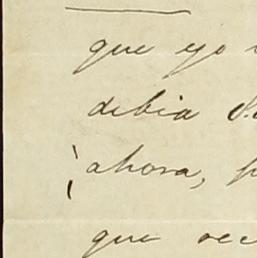 que yo
debia
ahora,
que